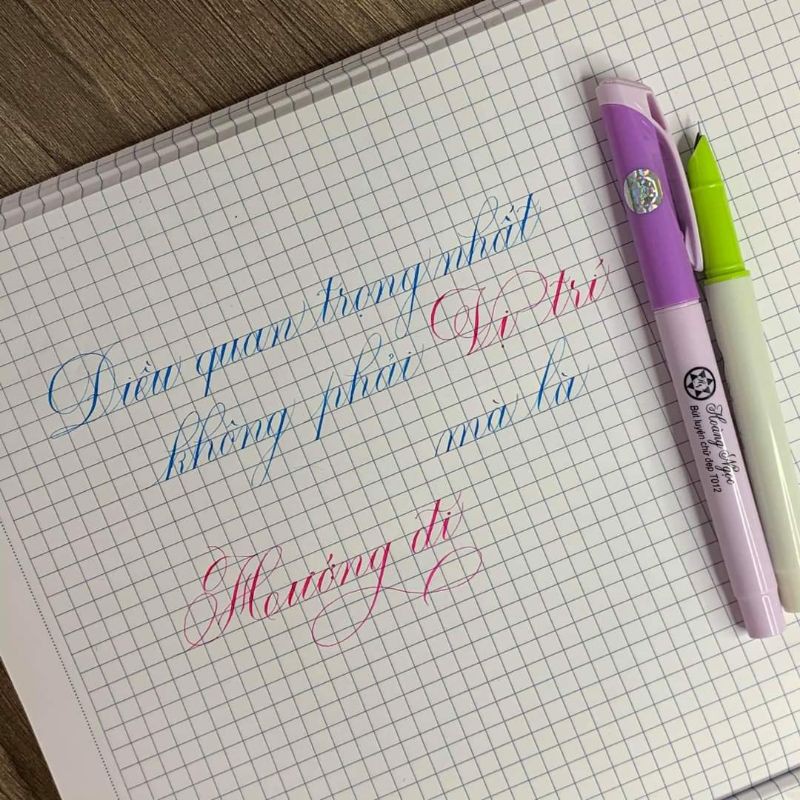 Điều quan trọng nhất
không phải Vị trí
mà là
Hướng đi
Hoàng Ngọc
Bút luyện chữ đẹp T012